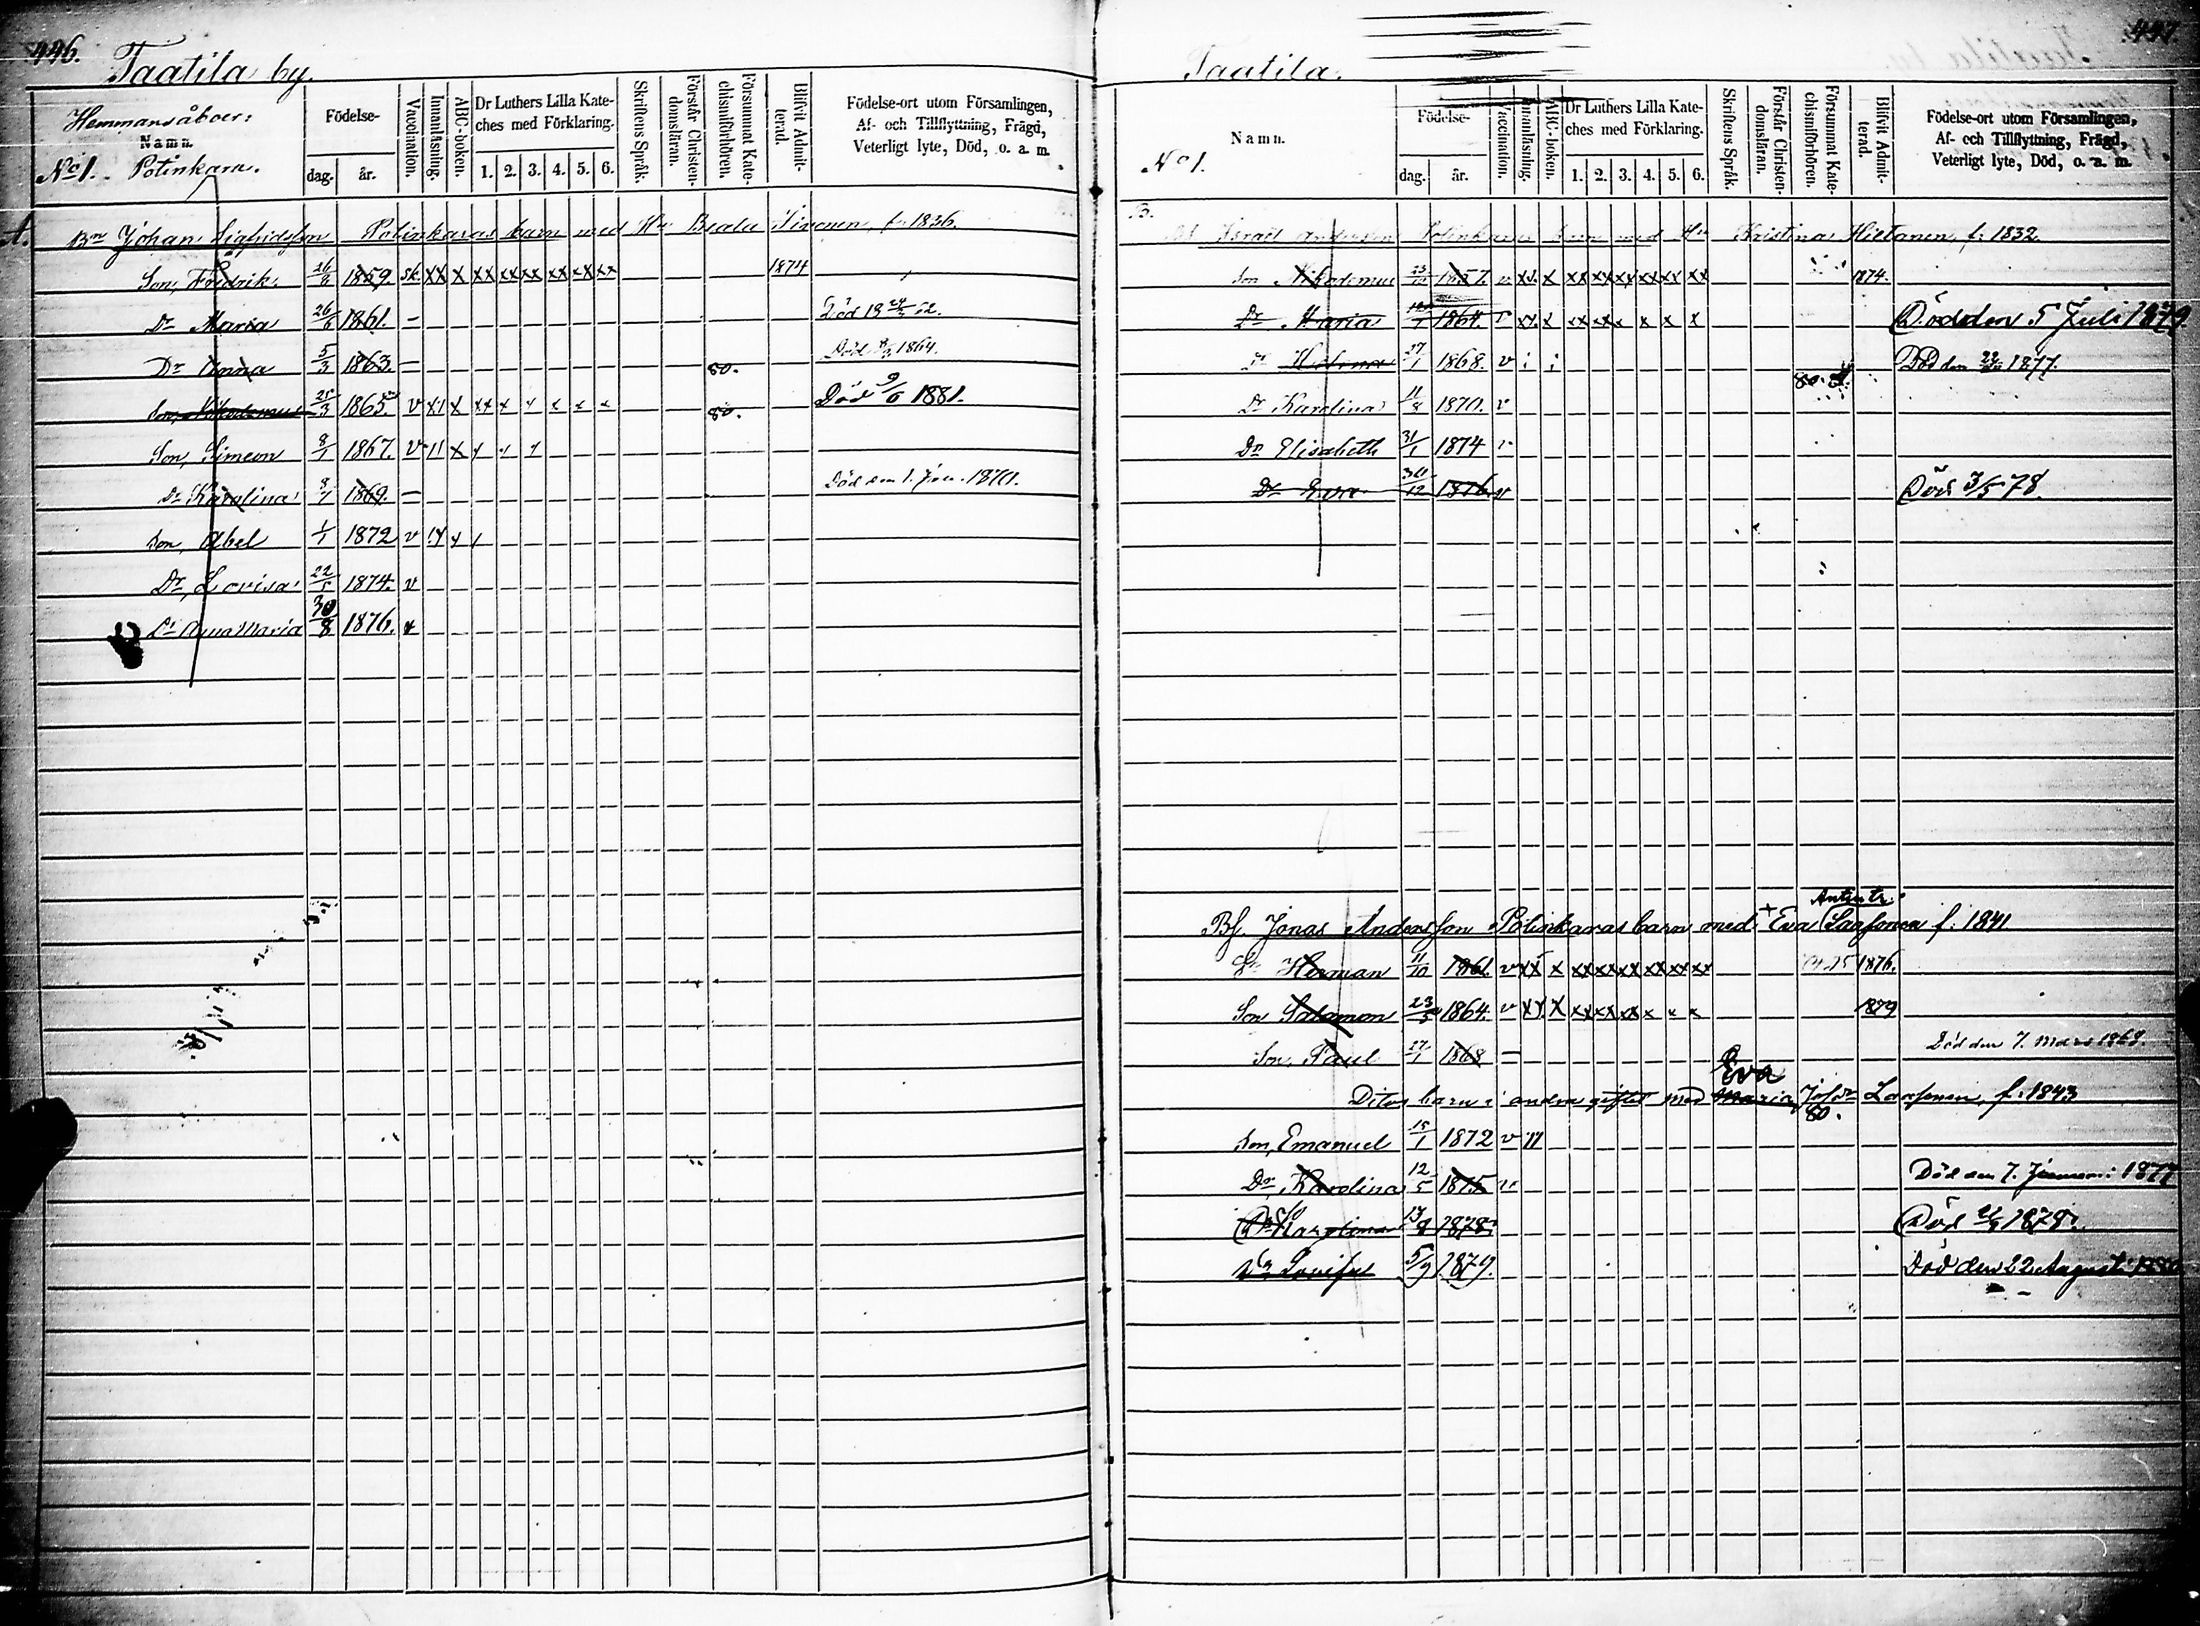 446.
Taatila by.
Hemmansåboer:
Namn.
No 1. Potinkara.
Födelse-
dag. år.
Vaccination.
Innanläsning.
ABC-boken.
Dr Luthers Lilla Kate-
ches med Förklaring.
1. 2. 3. 4. 5. 6.
Skriftens Språk.
Förstår Christen-
domsläran.
Försummat Kate-
chismiförhören.
Blifvit Admit-
terad.
Födelse-ort utom Församlingen,
Af- och Tillflyttning, Frägd,
Veterligt lyte, Död, o. a. m.
A. Bn Johan Sigfridsson Potinkaras barn med Hu Beata Simonen, f. 1836.
Son, Fredrik. 26/8 1859. sk. xx x xx xx xx xx xx xx 1874
Dr Maria 26/6 1861. –
Dr Anna 5/3 1863. – 80. 1864.
Son, Nikodemus 25/3 1865 v x x 80. Död 9/6 1881.
Son, Simeon 8/1 1867. v 11 x
Dr Karolina 8/1 1869. – Död den 1.
Son, Abel 1/1 1872 v
Dr, Lovisa 22/5 1874. v
Dr Anna Maria 30/8 1876. v
447.
Taatila.
No 1.
Namn.
Födelse-
dag. år.
Vaccination.
Innanläsning.
ABC-boken.
Dr Luthers Lilla Kate-
ches med Förklaring.
1. 2. 3. 4. 5. 6.
Skriftens Språk.
Förstår Christen-
domsläran.
Försummat Kate-
chismiförhören.
Blifvit Admit-
terad.
Födelse-ort utom Församlingen,
Af- och Tillflyttning, Frägd,
Veterligt lyte, Död, o. a. m.
B. Israel Andersson Potinkaras barn med Hu Kristina Hietanen, f: 1832.
Son Nikodemus 1857. v xx x xx xx xx xx xx xx 1874.
Dr Maria 1864. Död den 5 Juli 1879
Dr 27/1 1868. v Död den 1877.
Dr Karolina 11/8 1870. v
Dr Elisabeth 31/1 1874 v
Dr Eva 30/12 1876 v Död 3/5 78.
Antintr.
Bf. Jonas Andersson Potinkaras barn med + Eva Laasonen f: 1841
Herman 11/10 1861. v xx x xx xx xx xx xx xx 1876.
Son Salamon 23/5 1864. v xx x xx xx xx x x x 1879
Son, Paul 27/1 1868 – Död den 7. Mars 1868.
Eva
Ditos barn i andra giftet med Maria Laasonen, f: 1843
80.
Son, Emanuel 15/1 1872 v 11
Dr, Karolina 12/5 1875 v Död den 7. 1877
Dr Karolina 1878. Död 1878.
Dr Lovisa 5/9 1879. Död den 22 Augusti